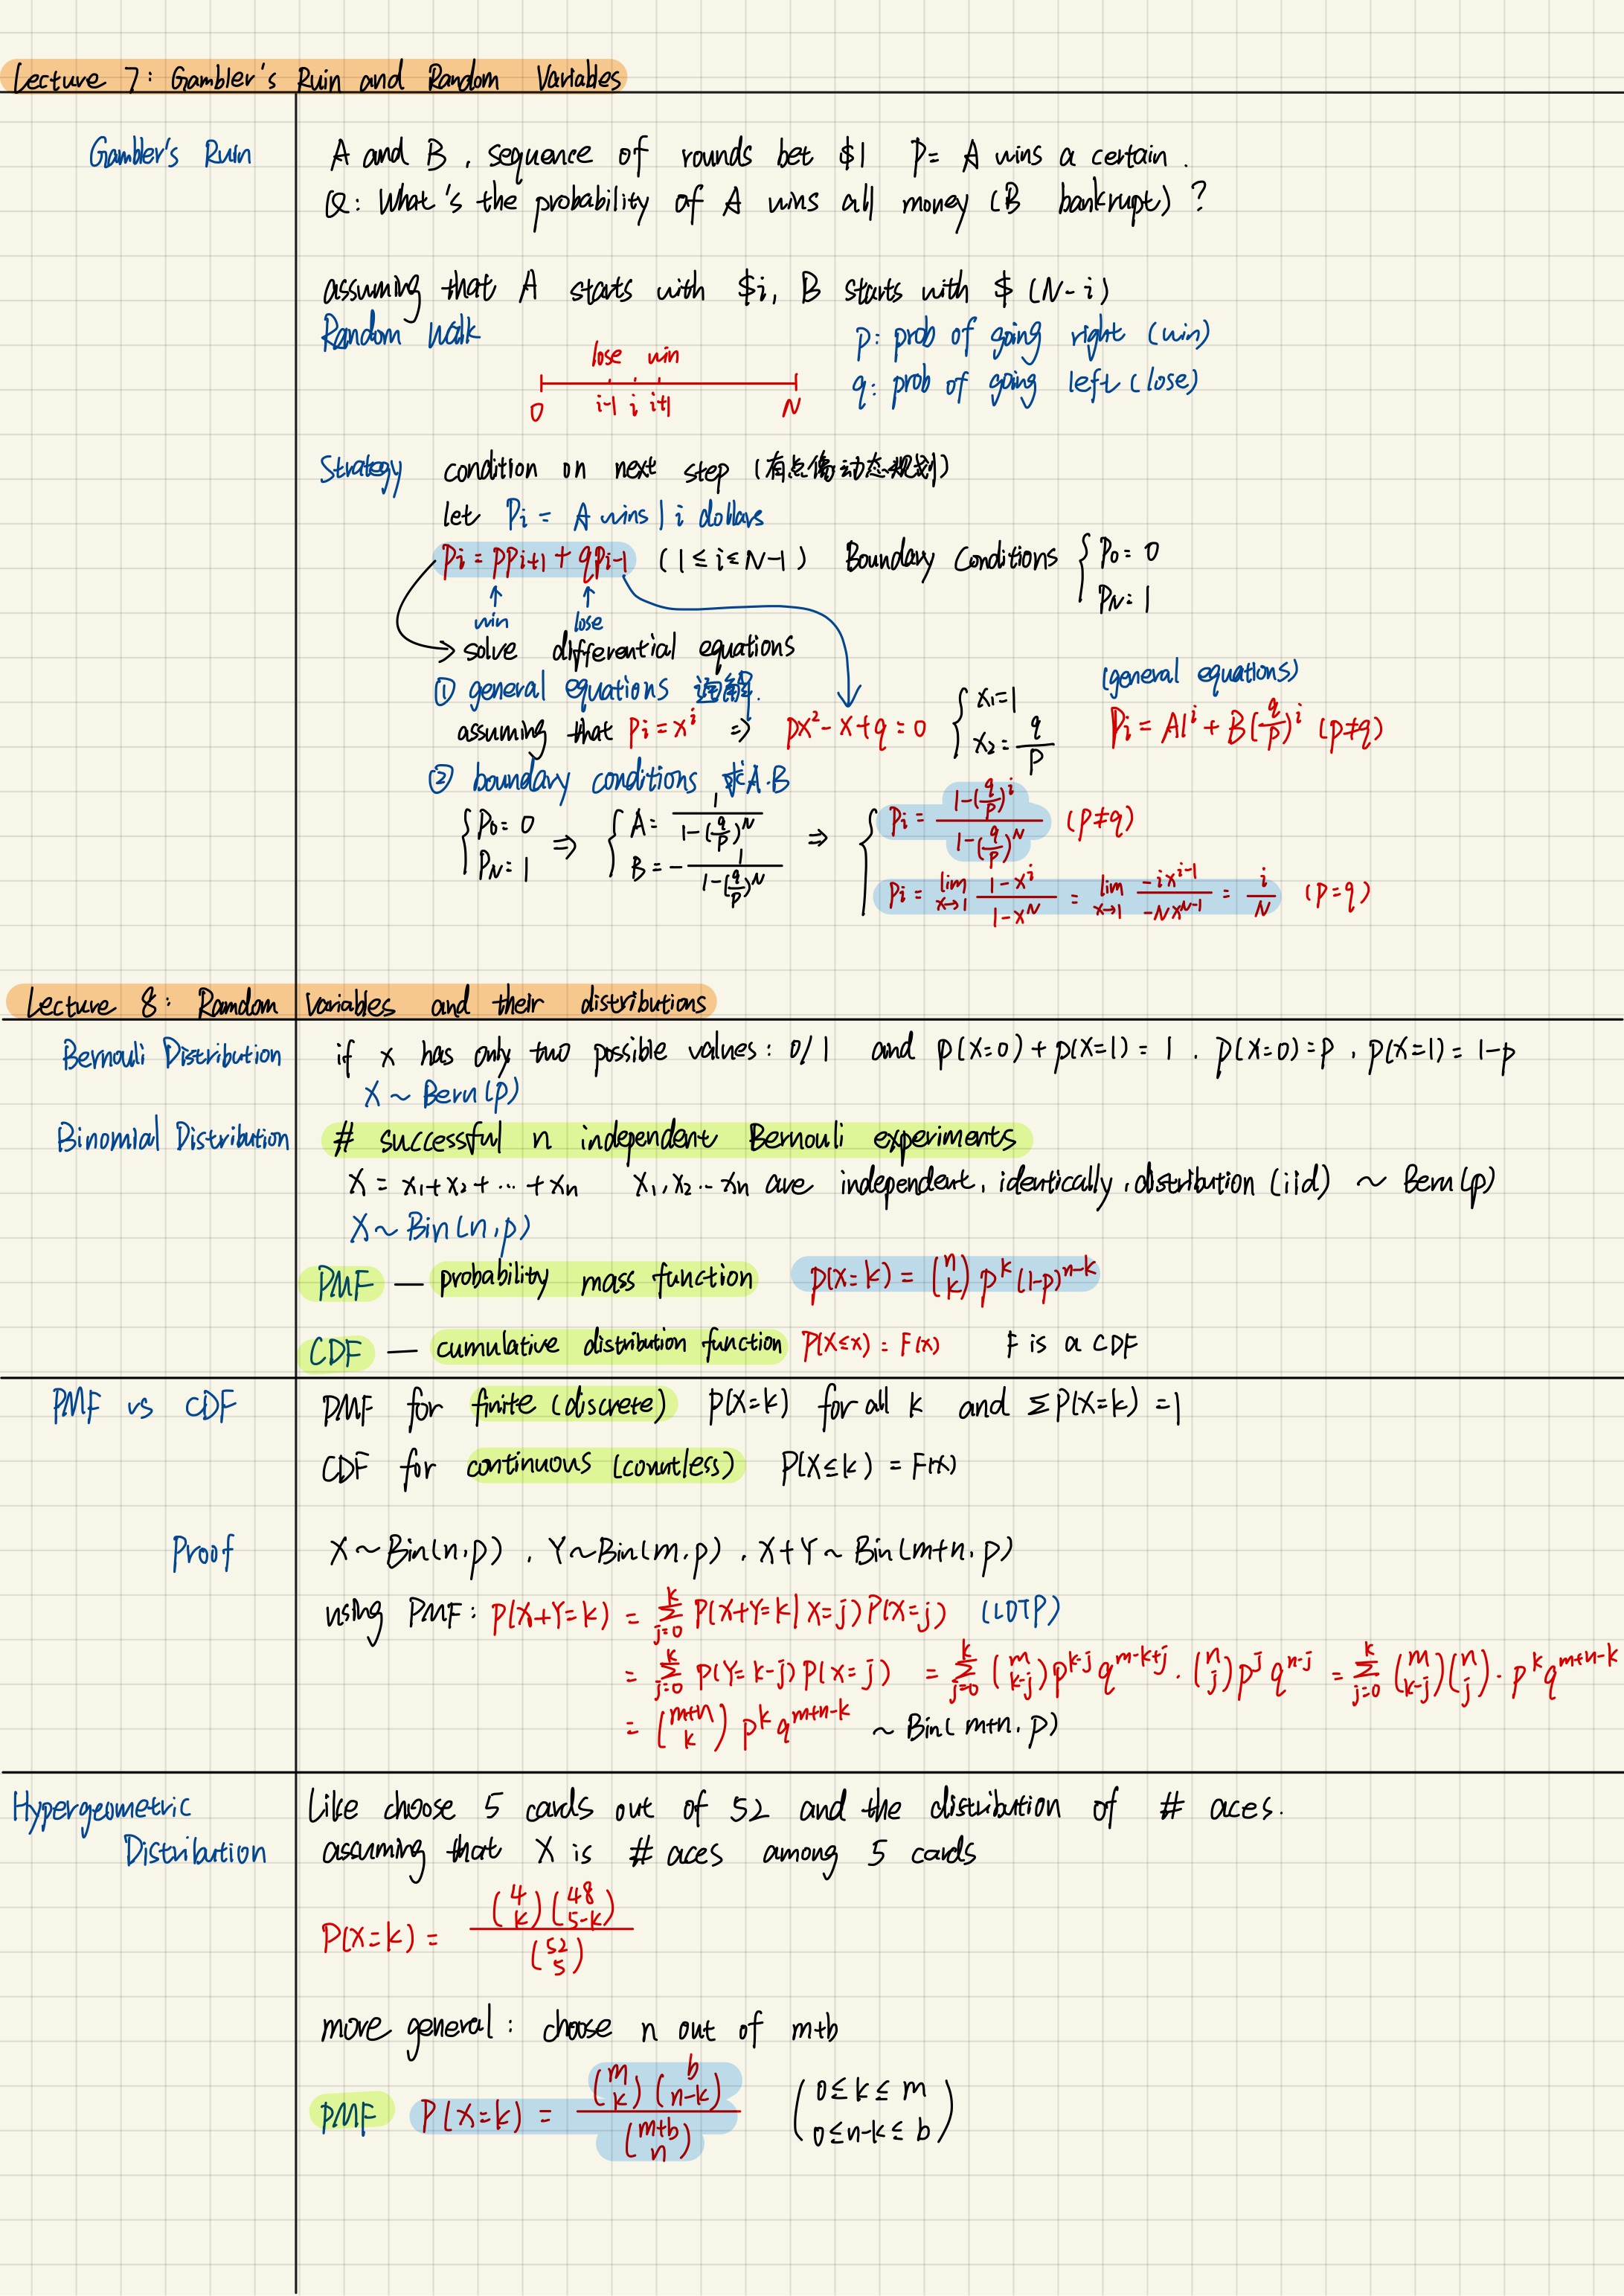 Lecture 7: Gambler's Ruin and Random Variables
Gambler's Ruin
A and B, sequence of rounds bet $1 P= A wins a certain.
Q: What's the probability of A wins all money (B bankrupt)?
assuming that A starts with $i, B starts with $ (N-i)
Random Walk
p: prob of going right (win)
lose win
q: prob of going left (lose)
0 i-1 i i+1 N
Strategy condition on next step (有点像动态规划)
let Pi = A wins | i dollars
Pi = pPi+1 + qPi-1 (1≤i≤N-1) Boundary Conditions { P0 = 0
PN = 1
↑ ↑
win lose
→ solve differential equations
① general equations 通解.
(general equations)
assuming that Pi = x^i ⇒ px² - x + q = 0 { x1 = 1 x2 = q/p Pi = A1^i + B(q/p)^i (p≠q)
② boundary conditions 求A.B
{ P0 = 0 PN = 1 ⇒ { A = 1/(1-(q/p)^N) B = -1/(1-(q/p)^N) ⇒ { Pi = (1-(q/p)^i)/(1-(q/p)^N) (p≠q)
Pi = lim x→1 (1-x^i)/(1-x^N) = lim x→1 (-ix^(i-1))/(-Nx^(N-1)) = i/N (p=q)
Lecture 8: Ramdom Variables and their distributions
Bernouli Distribution
if x has only two possible values: 0/1 and p(X=0) + p(X=1) = 1. p(X=0) = p, p(X=1) = 1-p
X ~ Bern(p)
Binomial Distribution
# successful n independent Bernouli experiments
X = x1+x2+ ... +xn x1, x2 ... xn are independent, identically, distribution (iid) ~ Bern(p)
X ~ Bin(n,p)
PMF — probability mass function p(X=k) = (n k) p^k (1-p)^(n-k)
CDF — cumulative distribution function P(X≤x) = F(x) F is a CDF
PMF vs CDF
PMF for finite (discrete) P(X=k) for all k and ΣP(X=k) = 1
CDF for continuous (conutless) P(X≤k) = F(x)
Proof
X~Bin(n,p), Y~Bin(m,p), X+Y ~ Bin(m+n,p)
using PMF: P(X+Y=k) = Σ_{j=0}^{k} P(X+Y=k|X=j)P(X=j) (LOTP)
= Σ_{j=0}^{k} P(Y=k-j)P(X=j) = Σ_{j=0}^{k} (m k-j)p^(k-j) q^(m-k+j) · (n j)p^j q^(n-j) = Σ_{j=0}^{k} (m k-j)(n j) · p^k q^(m+n-k)
= (m+n k) p^k q^(m+n-k) ~ Bin(m+n, p)
Hypergeometric
Distribution
Like choose 5 cards out of 52 and the distribution of # aces.
assuming that X is # aces among 5 cards
P(X=k) = (4 k)(48 5-k) / (52 5)
more general: choose n out of m+b
PMF P(X=k) = (m k)(b n-k) / (m+b n) (0≤k≤m
0≤n-k≤b)